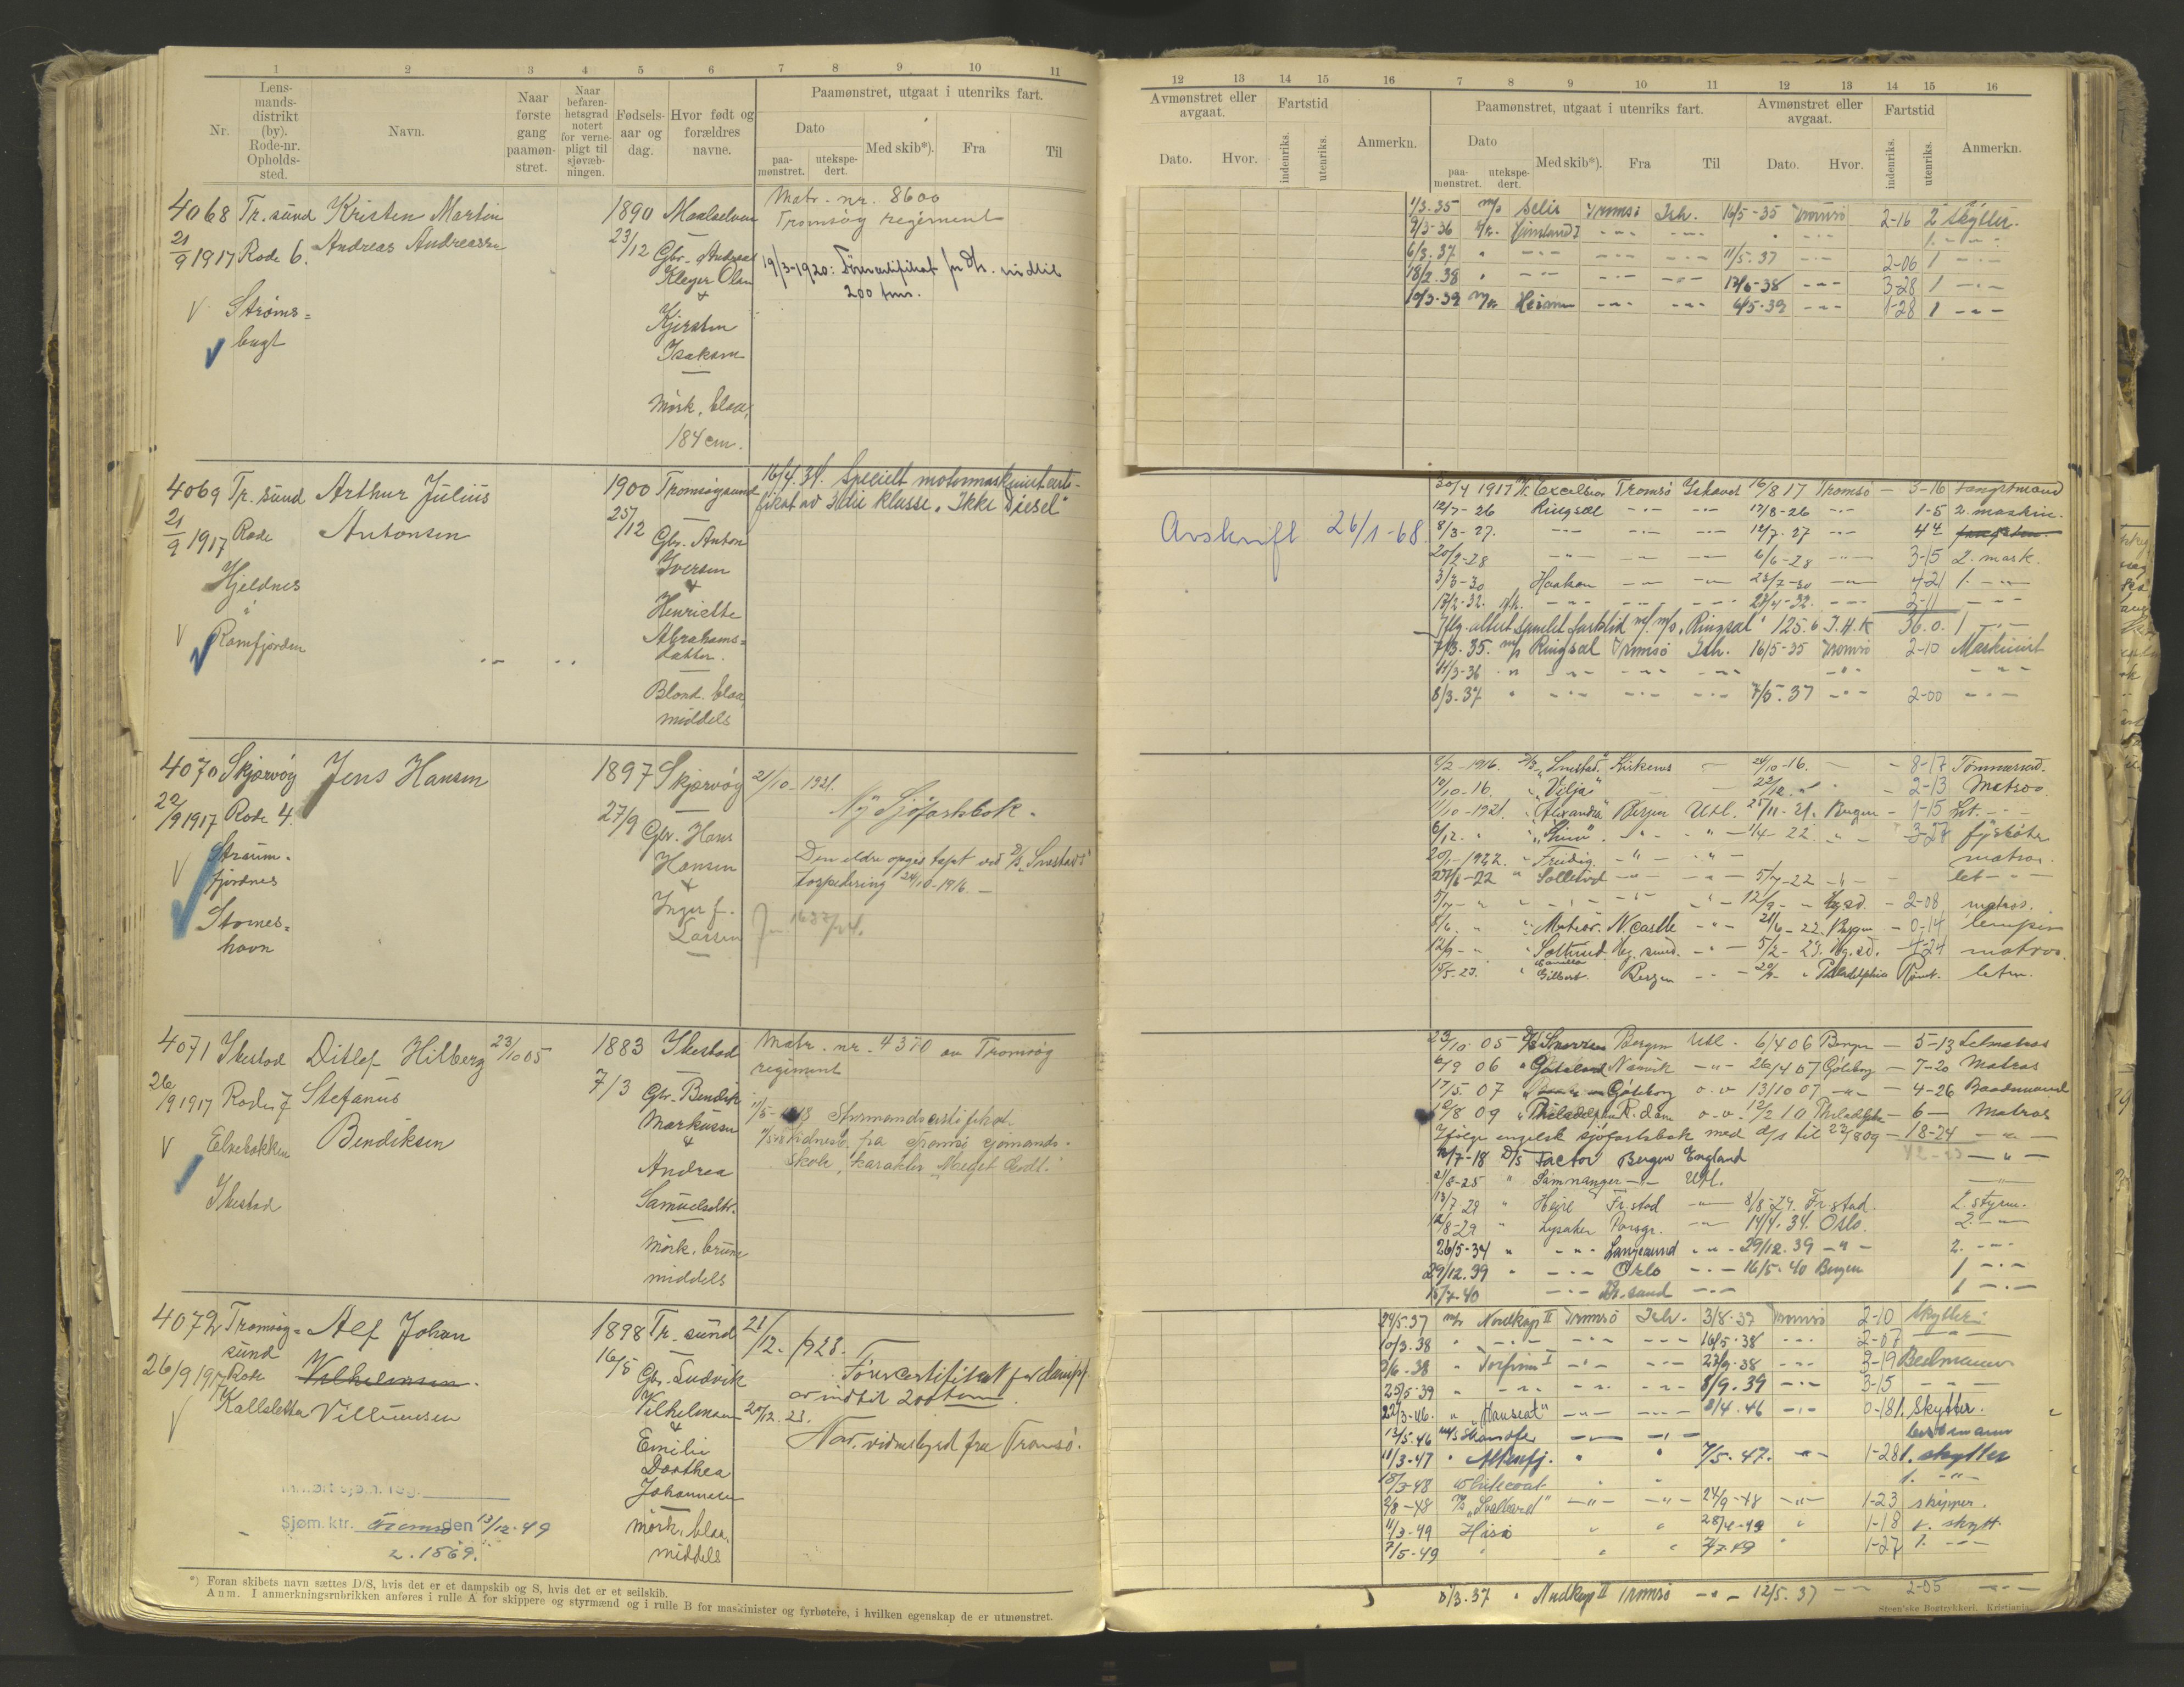 1 2 3 4 5 6 7 8 9 10 11
Nr.
Lens-
mands-
distrikt
(by).
Rode-nr.
Opholds-
sted.
Navn.
Naar
første
gang
paamøn-
stret.
Naar
befaren-
hetsgrad
notert
for verne-
pligt til
sjøvæb-
ningen.
Fødsels-
aar og
dag.
Hvor født og
forældres
navne.
Paamønstret, utgaat i utenriks fart.
Dato
paa-
mønstret.
utekspe-
dert.
Med skib*).
Fra
Til
4068 Tr. sund Kristen Martin 1890 Maalselven Matr. nr. 8600
21/9 1917 Rode 6. Andreas Andreassen 23/12 Gbr. Andreas Tromsøy regiment
Kleyer Olsen 19/3-1920:
200 tons.
V Strøms=
bugt
Kjersten
Isaksen
Mørk, blaa,
184 cm.
4069 Tr. sund Arthur Julius 1900 Tromsøysund 16/4.34. Specielt motormaskinistcerti-
21/9 1917 Rode Antonsen 25/12 Gbr. Anton fikat av 3die klasse "Ikke Diesel"
Hjeldnes Iversen
V Ramfjorden
Henriette
Abrahams=
datter.
Blond, blaa,
middels
4070 Skjervøy Jens Hansen 1897 Skjervøy 21/10-1921.
22/9 1917 Rode 4. 27/9 Gbr. Hans Ny Sjøfartsbok.
V Straum-
fjordnes
Stornes=
havn
Hansen
Inger f.
Larsen
Den eldre opgis tapt ved D/S "Snestad"
torpedering 24/10-1916. -
4071 Ibestad Ditlef Hilberg 23/10 05 1883 Ibestad Matr. nr. 4370 av Tromsøy
26/9 1917 Rode 7 Stefanus 7/3 Gbr. Bendik regiment
V Elvebakken Bendiksen Markussen
Ibestad
Styrmandscertifikat.
Andrea
Samuelsdtr.
mørk, brune
middels
skole, karakter "Meget Godt."
4072 Tromsøy= Alf Johan 1898 Tr. sund 21/12. 1923.
sund
26/9 1917 Rode Vilhelmsen. 16/5 Gbr. Ludvik Førercertifikat for damps.
V Kallsletta Villumsen Vilhelmsen av indtil 200 tonn.
20/12. 23.
Nav. vidnesbyrd fra Tromsø.
Emilie
Dorthea
Johannesen
mörk, blaa,
middels
Sjøm. ktr. Tromsø den 13/12-49
2. 1569.
*) Foran skibets navn sættes D/S, hvis det er et dampskib og S, hvis det er et seilskib.
Anm. I anmerkningsrubrikken anføres i rulle A for skippere og styrmænd og i rulle B for maskinister og fyrbøtere, i hvilken egenskap de er utmønstret.
12 13 14 15 16 7 8 9 10 11 12 13 14 15 16
Avmønstret eller
avgaat.
Dato. Hvor.
Fartstid
indenriks. utenriks.
Anmerkn.
Paamønstret, utgaat i utenriks fart.
Dato
paa-
mønstret.
utekspe-
dert.
Med skib*). Fra Til
Avmønstret eller
avgaat.
Dato. Hvor.
Fartstid
indenriks. utenriks.
Anmerkn.
1/3.35 m/s Selis Tromsø Ish. 16/5-35 Tromsø 2-16 2 skytter.
6/3.37 " -"- -"- -"- 11/5.37 -"- 2-06 1 -"-
18/2.38 " -"- -"- -"- 3-28 1 -"-
10/3-39 m/k Heimen -"- -"- 6/5-39 -"- 1-28 1 -"-
Avskrift 26/1-68
30/4 1917 Excelsior Tromsø Ishavet 16/8 17 Tromsø - 3-16 fangstmand
12/7-26 Ringsæl -"- -"- 17/8-26 -"- 1-5 2. maskin.
8/3-27. -"- -"- -"- 12/7.27 -"- 4 4
20/2-28 -"- -"- -"- 6/6-28 -"- 3-15 2. mask.
3/3-30 Haakon -"- -"- 23/7-30 -"- 4-21 1. -"-
-"- -"- -"- -"- 2-11 -"-
Iflg. attest samlet fartstid m/ m/s "Ringsæl" 125.6 I.H.K 36.0. 1 -"-
7/3.35. m/s Ringsæl Tromsø Ish. 16/5-35 Tromsø 2-10 Maskinist
11/3-36 " -"- -"- -"- -"- -"-
8/3.37 " -"- -"- -"- 7/5.37 -"- 2-00 -"-
"Snestad" Kirkenes - 24/10-16. - 8-17 Tømmermd.
10/10-16. "Vilja" - 2-13 Matros
11/10-1921. "Alexandra" Bergen Utl. 25/11-21. Bergen - 1-15 Let.-"-
-"- -"- 1/4 22. 3-27 fyrbøter
20/1-1922. " Freidig. -"- -"- matros.
Sollund -"- -"- 5/7-22 -"- let-"-
2-08 matros.
N. castle -"- 21/6-22. Bergen - 0-14 lemper
Solstrand. Hg. sund. -"- 5/2-23. Hg. sd. 4-24 matros.
15/5-23. Gilbert. Bergen -"- Philadelphia Rømt. letm.
23/10 05 D/S Snorre Bergen Utl. 6/4 06 Bergen - 5-13 Letmatros
6/9 06 " Götaland Narvik -"- 26/4 07 Göteborg - 7-20 Matros
17/5. 07 Göteborg o.v. 13/10 07 -"- 4-26 Baadsmand
12/8 09 " Philadelphia R.dam o.v. 12/2 10 Philadelphia 6- Matros
Ifølge engelsk sjöfartsbok med d/s til 22/8 09 - 18-24 -"-
D/S Factor Bergen England -"-
21/8-25 " Samnanger -"- Utl. -"-
13/7 29 " Hejre Fr.stad -"- 8/8-29. Fr.stad. 2. styrm.
12/8-29 " Lysaker Porsgr. -"- 14/4. 34. Oslo. 2. -"-
26/5-34 " -"- Langesund -"- 29/12.39 -"- 2. -"-
29/12.39 " -"- Oslo -"- 16/5-40 Bergen 1 -"-
15/7-40 -"- -"- 1 -"-
24/5.37 m/s Nordkap II Tromsø Ish. 3/8.37 Tromsø 2-10 Skytter.
10/3.38 " -"- -"- -"- 16/5-38 -"- 2-07 -"-
2/6-38 " Torfinn I -"- -"- 22/9-38 -"- 3-19 Bestmann
25/5-39 " -"- -"- -"- 8/9.39 -"- 3-15 -"-
22/3-46. " "Hanseat" -"- -"- 8/4.46 -"- 0-18 1. Skytter.
13/5.46 -"- -"- bestmann
11/3-47 " Altenfj. " " 7/5.47. -"- 1-28 1. skytter
18/3-48 Whitecoat " " 1. -"-
2/8-48 m/s "Svalbard" -"- -"- 24/9-48 -"- 1-23 skipper.
11/3-49 Hisø " " 28/4-49 " 1-18 1. skytt.
7/5-49 " " " " 1-27 1. -"-
8/3.37 " Nordkap II Tromsø -"- 12/5.37 -"- 2-05 -"-
Steen'ske Bogtrykkeri, Kristiania.